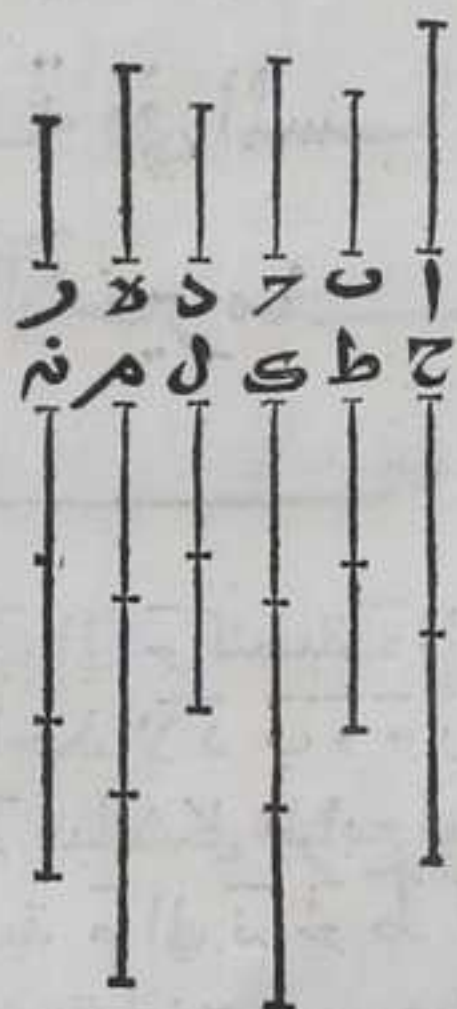 ا ب ج د ه ر
ح ط ى ل م ن